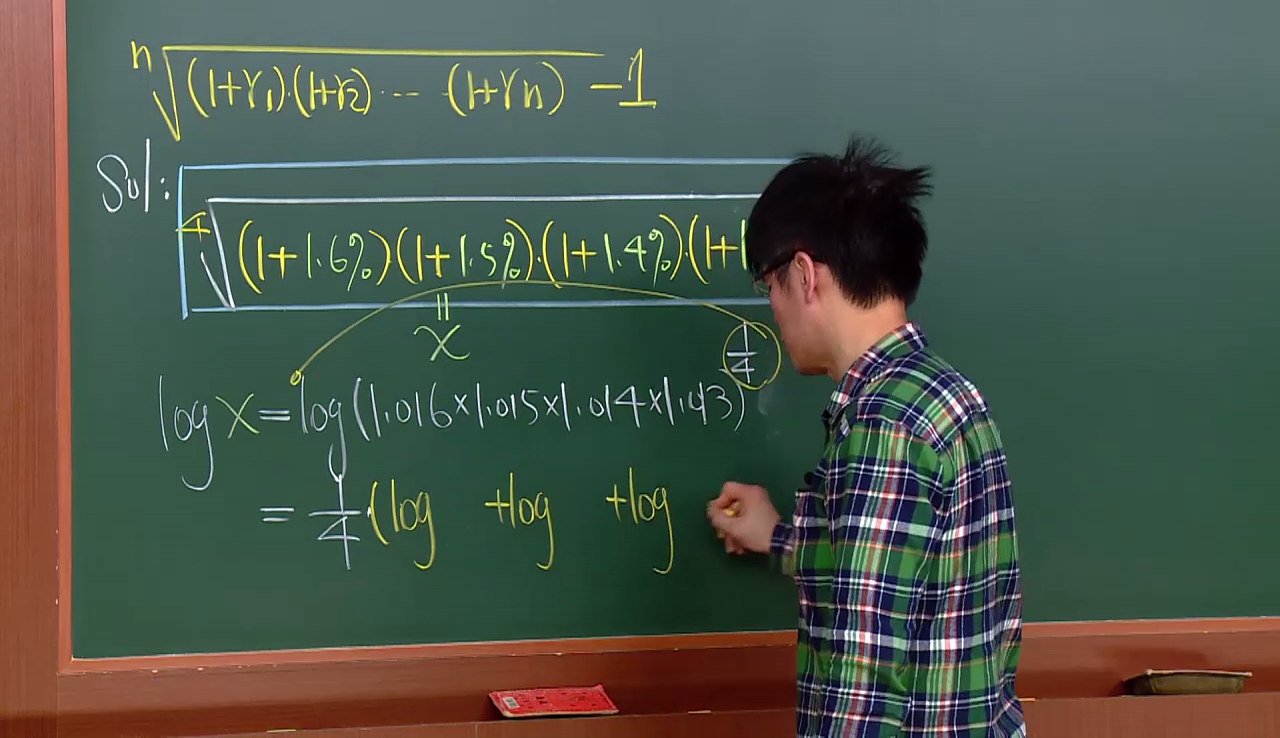 ⁿ√((1+r₁)·(1+r₂)⋯(1+rₙ)) −1
Sol:
⁴√(1+1.6%)(1+1.5%)·(1+1.4%)·(1+1
=
x
log x = log(1.016×1.015×1.014×1.013)^(1/4)
= 1/4·(log +log +log